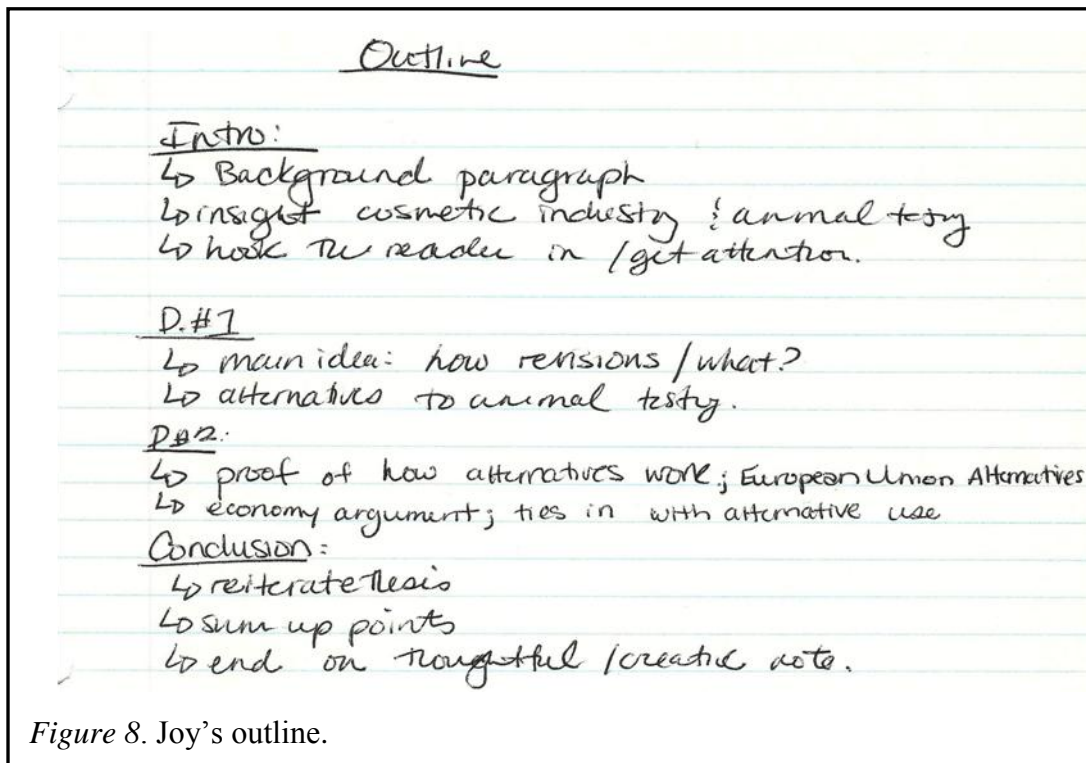 Outline
Intro:
↳ Background paragraph
↳ insight cosmetic industry & animal testing
↳ hook the reader in / get attention.
P.#1
↳ main idea: how revisions / what?
↳ alternatives to animal testing.
P#2:
↳ proof of how alternatives work; European Union Alternatives
↳ economy argument; ties in with alternative use
Conclusion:
↳ reiterate thesis
↳ sum up points
↳ end on thoughtful / creative note.
Figure 8. Joy's outline.